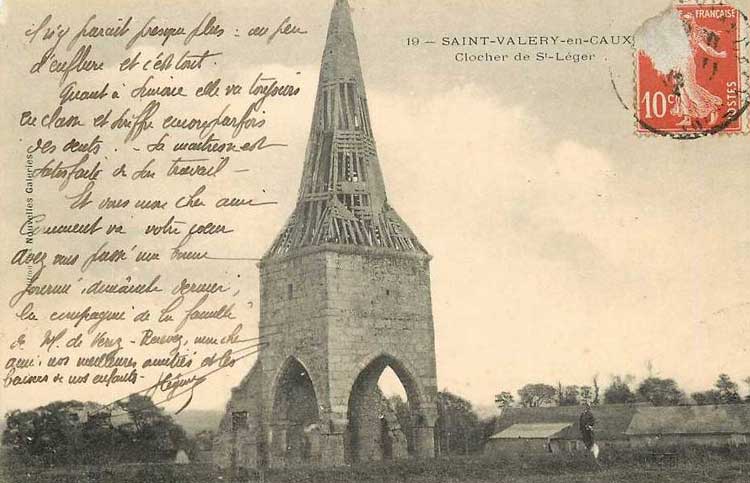 il n'y paraît presque plus : un peu
d'enflure et c'est tout.
Quant à Simone elle va toujours
en classe et souffre encore parfois
des dents. - Sa maîtresse est
satisfaite de son travail -
Et vous mon cher ami
Comment va votre cœur
avez vous passé une bonne
journée, dimanche dernier,
en compagnie de la famille
de M. de - Recevez, mon cher
ami, nos meilleures amitiés et les
baisers de nos enfants -
Nouvelles Galeries
19 - SAINT-VALERY-en-CAUX
Clocher de St-Léger
FRANÇAISE
10c
POSTES